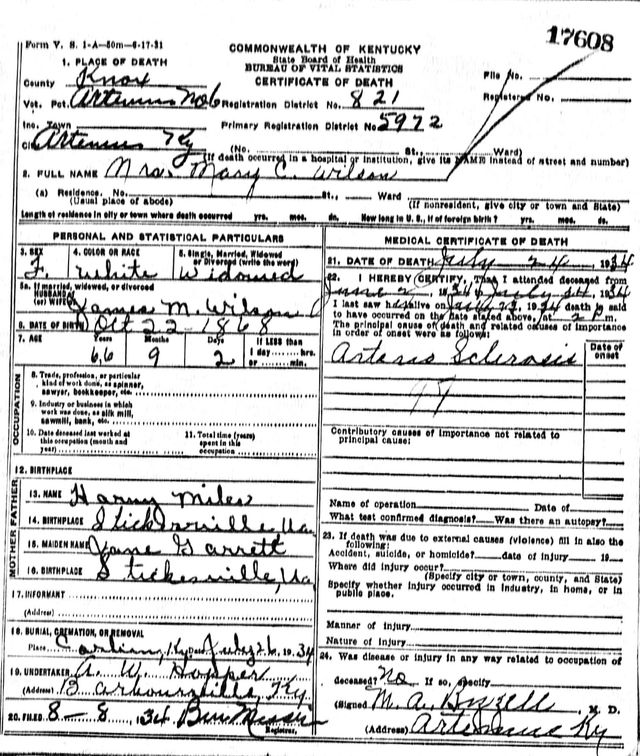 17608
Form V. S. 1-A—50m—6-17-31
COMMONWEALTH OF KENTUCKY
State Board of Health
BUREAU OF VITAL STATISTICS
CERTIFICATE OF DEATH
1. PLACE OF DEATH
County Knox
File No.
Vot. Pct. Artemus No 6 Registration District No. 821
Registered No.
Inc. Town Primary Registration District No. 5972
City Artemus Ky (No. St., Ward)
(If death occurred in a hospital or institution, give its NAME instead of street and number)
2. FULL NAME Mrs. Mary C. Wilson
(a) Residence. No. St., Ward
(Usual place of abode) (If nonresident, give city or town and State)
Length of residence in city or town where death occurred yrs. mos. ds. How long in U. S., if of foreign birth? yrs. mos. ds.
PERSONAL AND STATISTICAL PARTICULARS
3. SEX 4. COLOR OR RACE 5. Single, Married, Widowed or Divorced (write the word)
F. White Widowed
5a. If married, widowed, or divorced
HUSBAND of
(or) WIFE of James M. Wilson
6. DATE OF BIRTH Oct 22-1868
7. AGE Years Months Days If LESS than
66 9 2 1 day hrs.
or min.
OCCUPATION
8. Trade, profession, or particular
kind of work done, as spinner,
sawyer, bookkeeper, etc.
9. Industry or business in which
work was done, as silk mill,
sawmill, bank, etc.
10. Date deceased last worked at
this occupation (month and
year)
11. Total time (years)
spent in this
occupation
12. BIRTHPLACE
FATHER
13. NAME Harvy Miles
14. BIRTHPLACE Stickerville, Va.
MOTHER
15. MAIDEN NAME Jane Garrett
16. BIRTHPLACE Stickesville, Va
17. INFORMANT
(Address)
18. BURIAL, CREMATION, OR REMOVAL
Place Ky Date July 26, 1934
19. UNDERTAKER A. W. Hopper
(Address) Barbourville, Ky
20. FILED 8-8, 1934
Registrar.
MEDICAL CERTIFICATE OF DEATH
21. DATE OF DEATH July 24 1934
22. I HEREBY CERTIFY, That I attended deceased from
June 2 1934 to July 24, 1934
I last saw h alive on July 23, 1934 death is said
to have occurred on the date stated above, at 2 P.m.
The principal cause of death and related causes of importance
in order of onset were as follows:
Date of onset
Arterio Sclerosis
97
Contributory causes of importance not related to
principal cause:
Name of operation Date of
What test confirmed diagnosis? Was there an autopsy?
23. If death was due to external causes (violence) fill in also the
following:
Accident, suicide, or homicide? date of injury 19
Where did injury occur?
(Specify city or town, county, and State)
Specify whether injury occurred in industry, in home, or in
public place.
Manner of injury
Nature of injury
24. Was disease or injury in any way related to occupation of
deceased? No If so, specify
(Signed M. A. M. D.
(Address) Artemus Ky